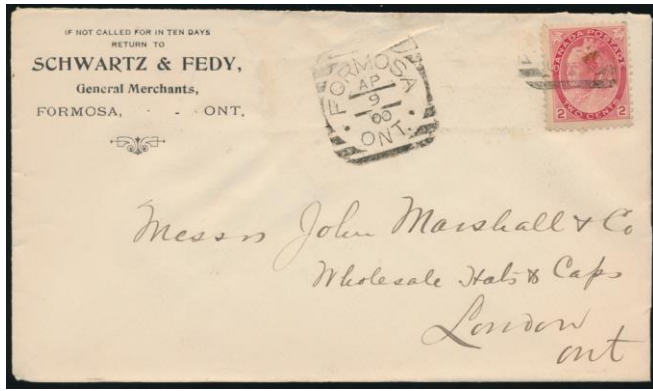 IF NOT CALLED FOR IN TEN DAYS
RETURN TO
SCHWARTZ & FEDY,
General Merchants,
FORMOSA, - - ONT.
FORMOSA
AP
9
00
ONT.
CANADA POSTAGE
2 TWO CENTS 2
Messrs John Marshall & Co
Wholesale Hats & Caps
London
Ont